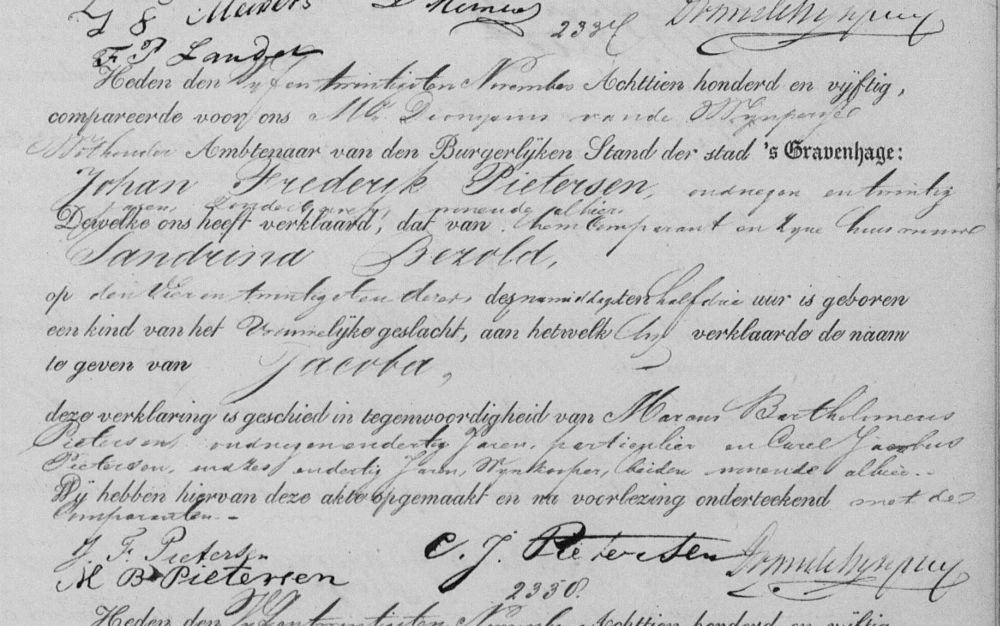 J F Meiners
2337
F P Lander
Heden den Vijf en twintigsten November Achttien honderd en vijftig,
compareerde voor ons Mr. Dionysius van de Wijnpersse
Wethouder Ambtenaar van den Burgerlijken Stand der stad 's Gravenhage:
Johan Frederik Pietersen, oud negen en twintig
Jaren, wonende alhier
Dewelke ons heeft verklaard, dat van hem Comparant en zyne huisvrouw
Sandrina Bezold,
op den Vier en twintigsten dezer des namiddags ten half drie uur is geboren
een kind van het Vrouwelijke geslacht, aan hetwelk hy verklaarde de naam
te geven van Jacoba,
deze verklaring is geschied in tegenwoordigheid van Marcus Bartholomeus
Pietersen, oud negen en dertig Jaren, particulier en Carel Jacobus
Pietersen, oud zes en dertig Jaren, Wynkooper, beiden wonende alhier.
Wij hebben hiervan deze akte opgemaakt en na voorlezing onderteekend met de
Comparanten.
J F Pietersen C. J. Pietersen
M B Pietersen
2338.
Heden den Vyf en twintigsten November Achttien honderd en vijftig,